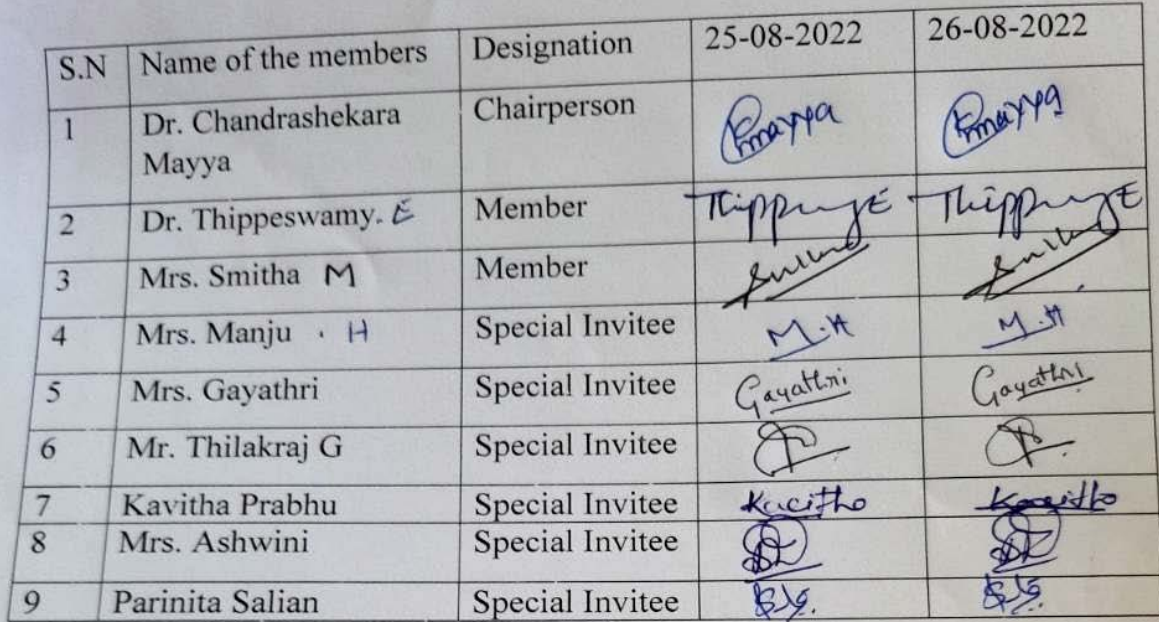 S.N Name of the members Designation 25-08-2022 26-08-2022
1 Dr. Chandrashekara Chairperson Cmayya Cmayya
Mayya
2 Dr. Thippeswamy. E Member
3 Mrs. Smitha M Member
4 Mrs. Manju . H Special Invitee M.H M.H
5 Mrs. Gayathri Special Invitee Gayathri Gayathri
6 Mr. Thilakraj G Special Invitee
7 Kavitha Prabhu Special Invitee
8 Mrs. Ashwini Special Invitee
9 Parinita Salian Special Invitee